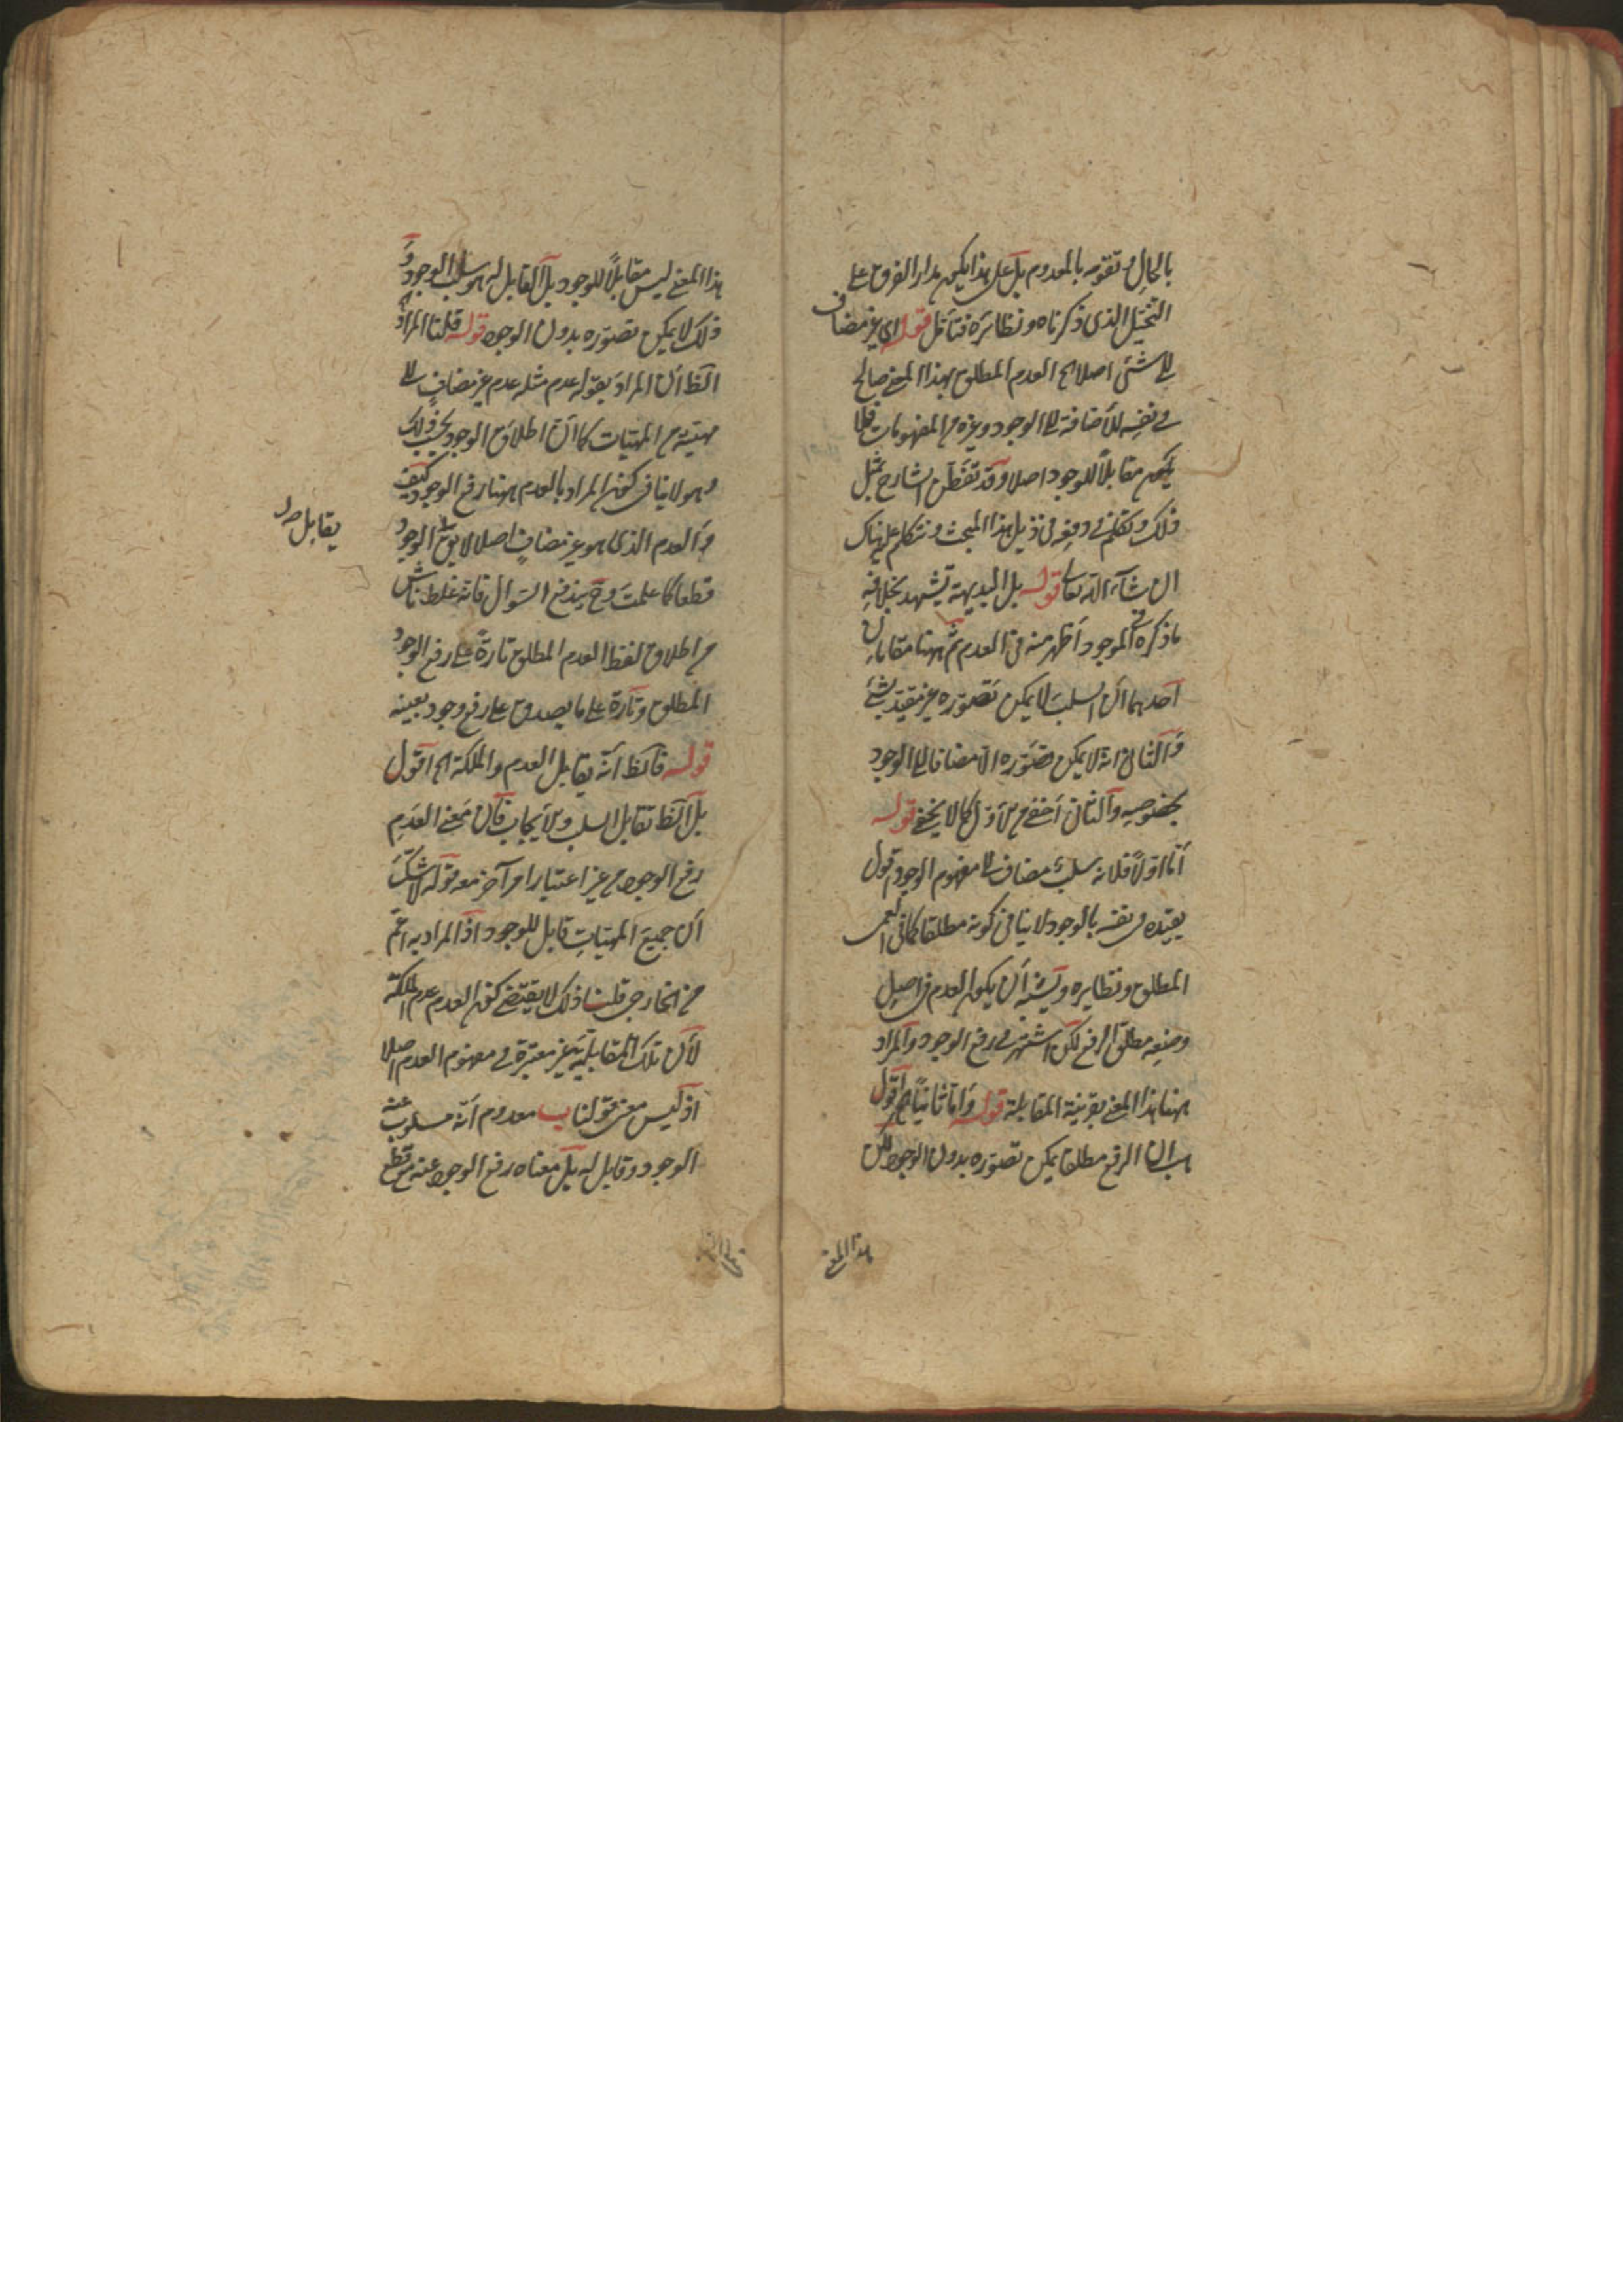 بالحال وتقومه بالمعدوم بل على هذا يكون مدار الفرق على
التخيل الذى ذكرناه ونظائره فتأمل قوله اى غير مضاف
الى شئ اصلا اه العدم المطلق بهذا المعنى صالح
فى نفسه للاضافة الى الوجود وغيره من المفهومات فلا
يكون مقابلاً للوجود اصلا وقد تفطن الشارح بمثل
ذلك وتكلم فى دفعه فى ذيل هذا المبحث ونتكلم عليه هناك
ان شآء الله تعالى قوله بل البديهة تشهد بخلافه
ما ذكره فى الموجود اظهر منه فى العدم ثم ههنا مقامان
احدهما ان السلب لا يمكن تصوره غير مقيد بشئ
والثانى انه لا يمكن تصوره الا مضافا الى الوجود
بخصوصه والثانى أخفى من الاول كما لا يخفى قوله
أما اولاً فلانه سلب مضاف الى مفهوم الوجود اقول
تقيده فى نفسه بالوجود لا ينافى كونه مطلقا كما فى العمى
المطلق ونظايره ويشبه أن يكون العدم فى اصل
وضعه مطلق الرفع لكن اشتهر فى رفع الوجود والمراد
ههنا هذا المعنى بقرينة المقابلة قوله وأما ثانياً اه اقول
هب ان الرفع مطلقا يمكن تصوره بدون الوجود لكن
هذا المعنى
هذا المعنى ليس مقابلاً للوجود بل المقابل له هو سلب الوجود و
ذلك لا يمكن تصوره بدون الوجود قوله قلنا المراد اه
الظ أن المراد بقوله عدم مثله عدم غير مضاف الى
مهية من المهيات كما أن اطلاق الوجود بحسب ذلك
وهو لا ينافى كون المراد بالعدم ههنا رفع الوجود كيف
والعدم الذى هو غير مضاف اصلا لا الوجود
يقابل صح
قطعا كما علمت وح يندفع السوال فانه غلط ناش
من اطلاق لفظ العدم المطلق تارة على رفع الوجود
المطلق وتارة على ما يصدق على رفع وجود بعينه
قوله فالظ أنه يقابل العدم والملكة اه اقول
بل الظ تقابل السلب والايجاب فان معنى العدم
رفع الوجود من غير اعتبار امر آخر معه قوله لا شك
أن جميع المهيات قابل للوجود اذ المراد به اعم
من الخارجى قلنا ذلك لا يقتضى كون العدم عدم الملكة
لأن تلك القابلية غير معتبرة فى مفهوم العدم اصلا
اذ ليس معنى قولنا ب معدوم أنه مسلوب عنه
الوجود وقابل له بل معناه رفع الوجود عنه مع قطع